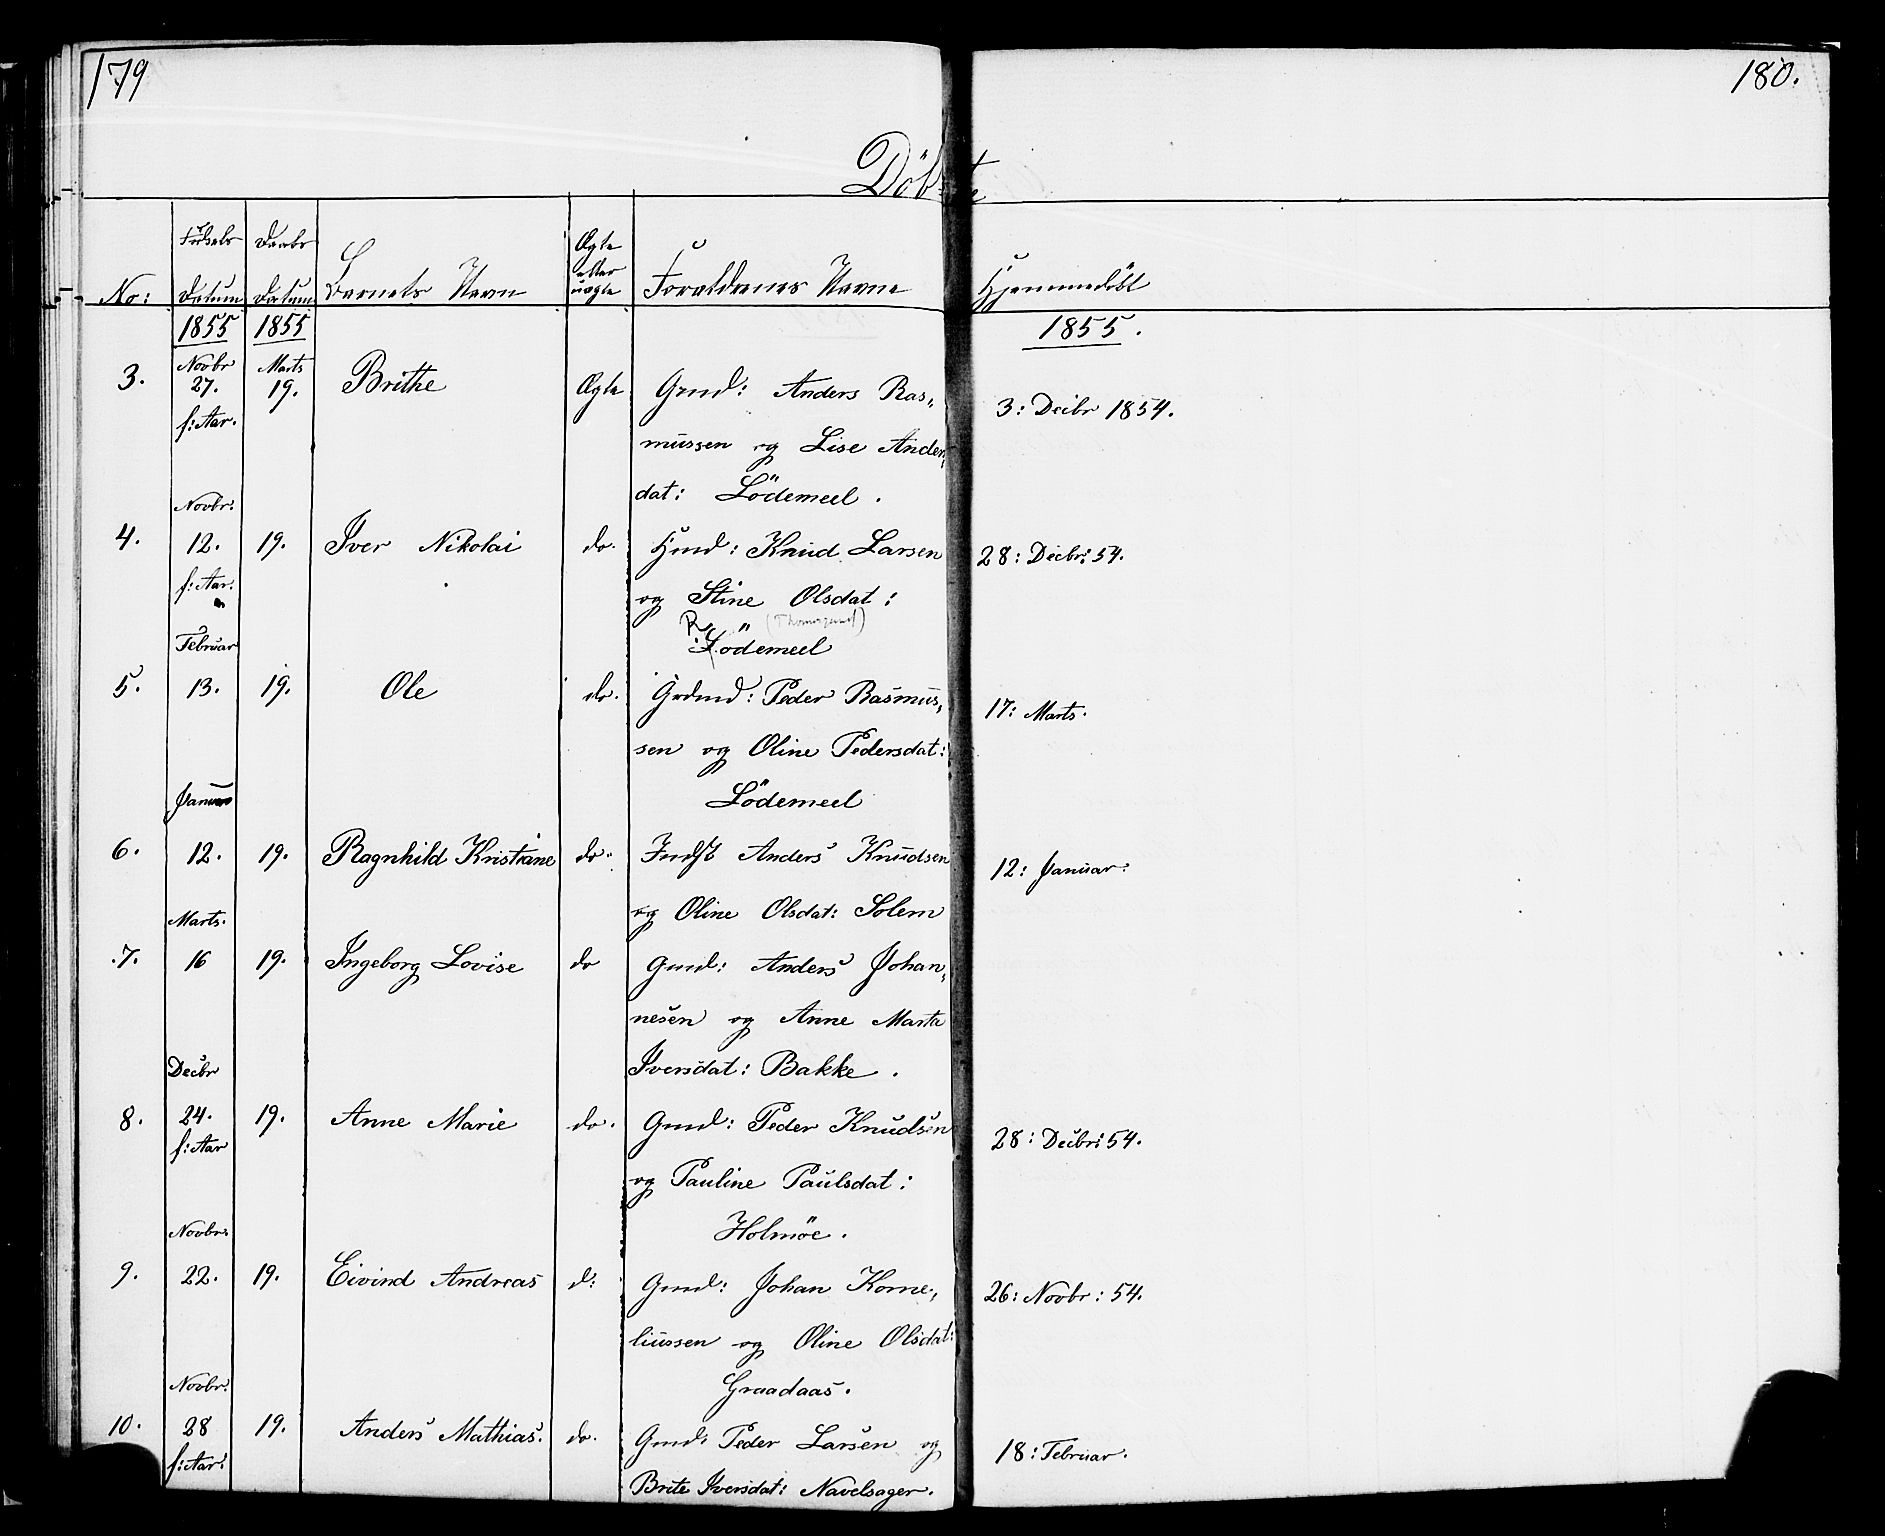 179
180.
Döbte
No:
Fødsels Datum
Daabs Datum
Barnets Navn
Ægte eller uægte
Forældrenes Navne
Hjemmedöbt
1855 1855 1855.
Novbr Marts
3. 27. 19. Brithe Ægte Gmd: Anders Ras„ 3: Decbr 1854.
f: Aar.
mussen og Lise Anders„
dat: Lödemeel.
Novbr:
4. 12. 19. Iver Nikolai do. Hmd: Knud Larsen 28: Decbr: 54.
f: Aar. og Stine Olsdat:
Lödemeel
Februar
5. 13. 19. Ole do. Grdmd: Peder Rasmus„ 17: Marts.
sen og Oline Pedersdat:
Lödemeel
Januar
6. 12. 19. Ragnhild Kristiane do. Indst Anders Knudsen 12: Januar:
og Oline Olsdat: Solem
Marts.
7. 16 19. Ingeborg Lovise do Gmd: Anders Johan„
nesen og Anne Marta
Iversdat: Bakke.
Decbr
8. 24. 19. Anne Marie do. Gmd: Peder Knudsen 28: Decbr: 54.
f: Aar
og Pauline Paulsdat:
Holmöe.
Novbr:
9. 22. 19. Eivind Andreas d: Gmd: Johan Korne„ 26: Novbr: 54.
liussen og Oline Olsdat:
Graadaas.
Novbr:
10. 28 19. Anders Mathias. do. Gmd: Peder Larsen og 18: Februar.
f: Aar:
Brite Iversdat: Navelsager.